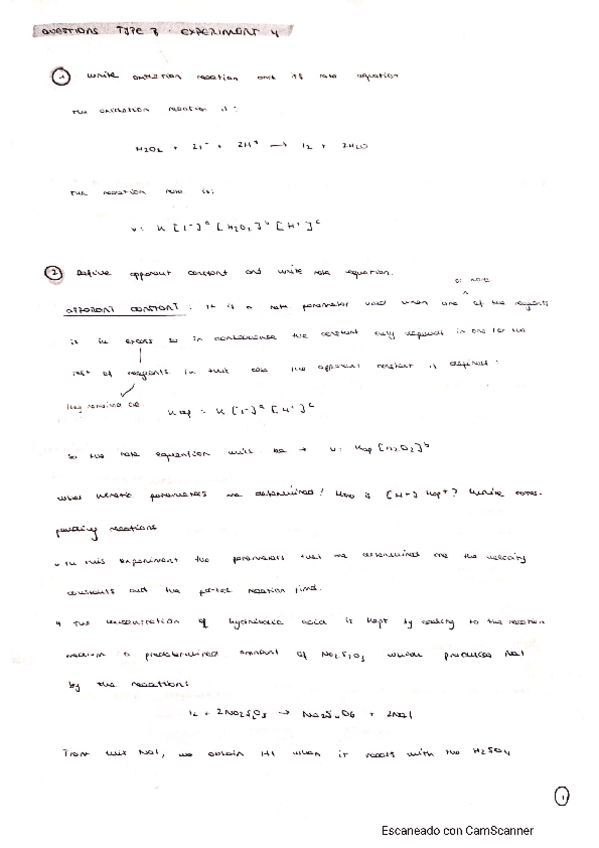 QUESTIONS TYPE 3 - EXPERIMENT 4
1 Write oxidation reaction and its rate equation
The oxidation reaction is:
H2O2 + 2I- + 2H+ → I2 + 2H2O
The reaction rate is:
v = K [I-]a [H2O2]b [H+]c
2 Define apparent constant and write rate equation.
or more
APPARENT CONSTANT: It is a rate parameter used when one of the reagents
is in excess so in the constant only depend in one for the
rest of reagents in that case the apparent constant is defined:
they remained
Kap = K [I-]a [H+]c
So the rate equation will be → v = Kap [H2O2]b
What kinetic parameters are determined? How is [H+] kept? Write corres-
ponding reactions
In this experiment the parameters that are determined are the velocity
constants and the reaction
The concentration of hydriodic acid is kept by adding to the reaction
medium a predetermined amount of Na2S2O3 which produces NaI
by the reaction:
I2 + 2Na2S2O3 → Na2S4O6 + 2NaI
From this NaI, we obtain HI when it reacts with the H2SO4
1
Escaneado con CamScanner